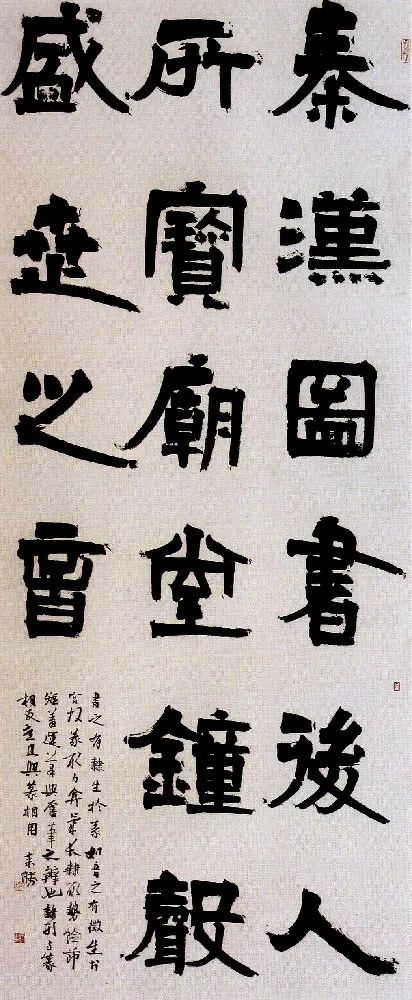 秦漢圖書後人
所寶廟堂鐘聲
盛世之音
書之有隸生於篆如音之有徵生於
宮故篆取力弇氣長隸取勢險節
短蓋運筆與奮筆之辨也隸形與篆
相反意且與篆相用